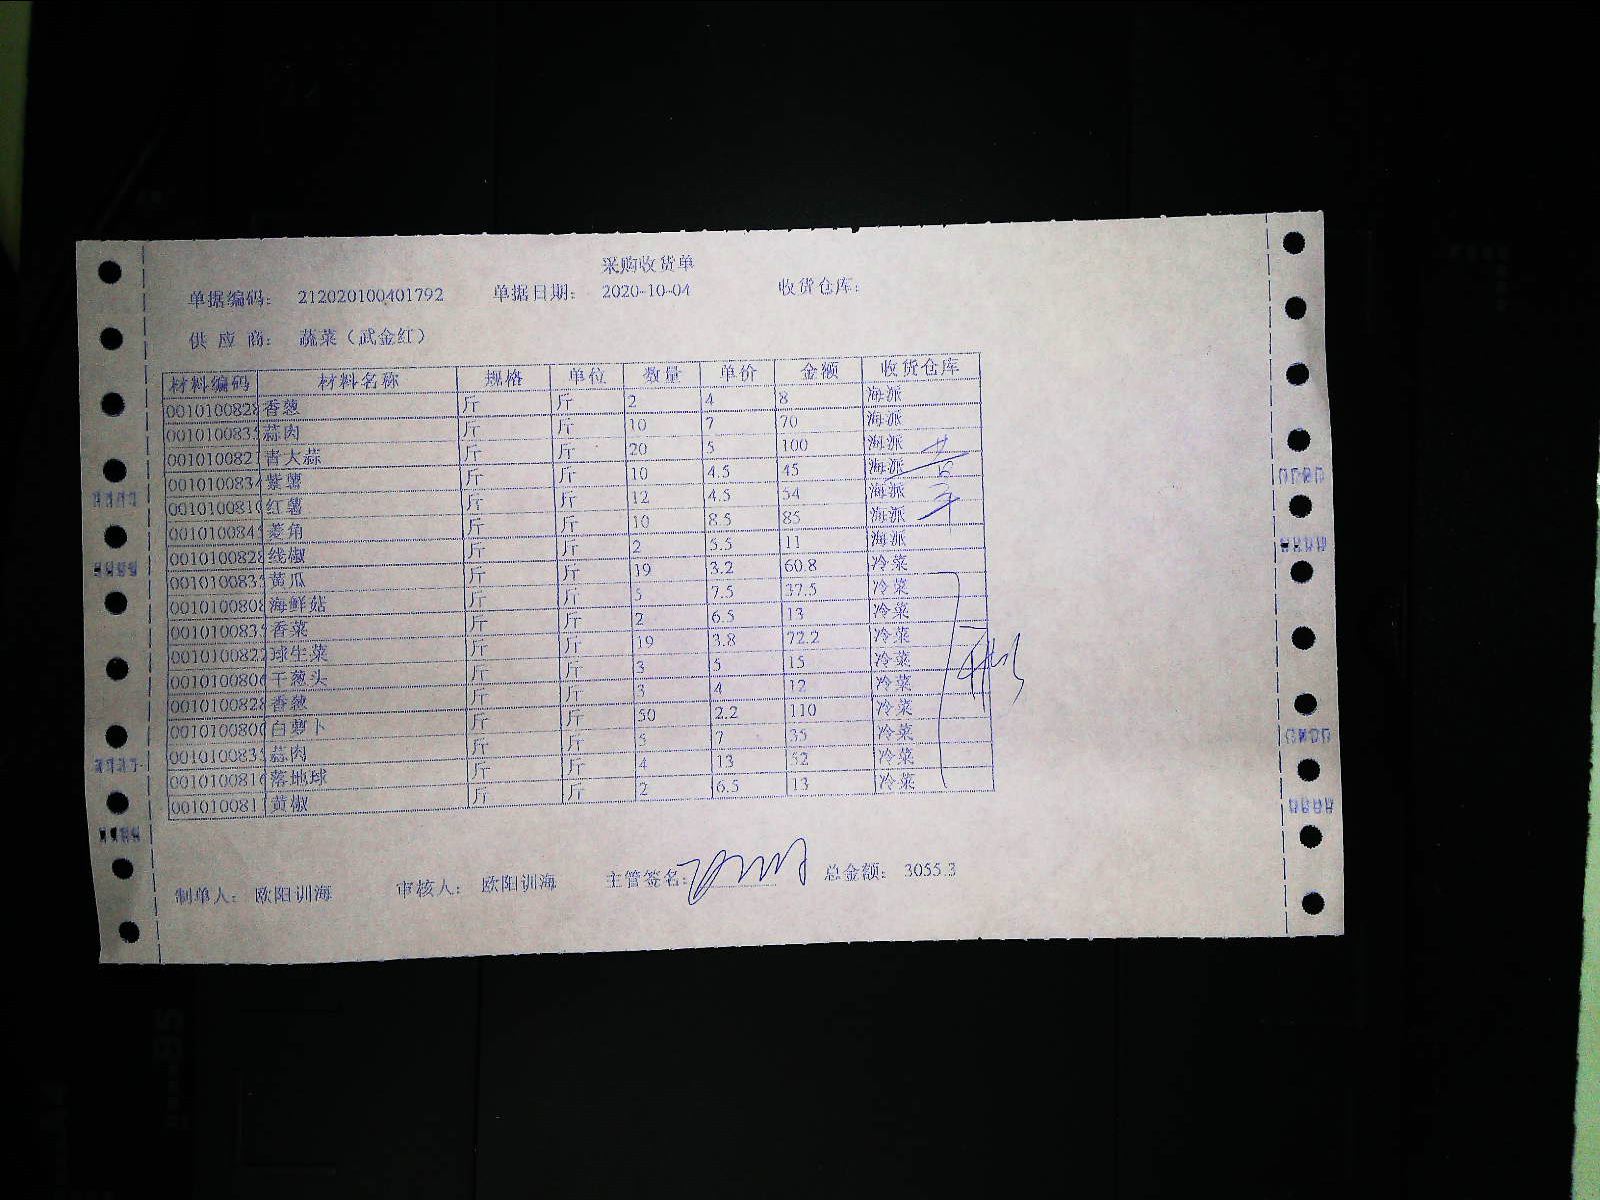 采购收货单
单据编码： 212020100401792 单据日期： 2020-10-04 收货仓库：
供 应 商： 蔬菜（武金红）
材料编码 材料名称 规格 单位 数量 单价 金额 收货仓库
0010100828 香葱 斤 斤 2 4 8 海派
001010083 蒜肉 斤 斤 10 7 70 海派
001010082 青大蒜 斤 斤 20 5 100 海派
0010100834 紫薯 斤 斤 10 4.5 45 海派
001010081 红薯 斤 斤 12 4.5 54 海派
001010084 菱角 斤 斤 10 8.5 85 海派
0010100828 线椒 斤 斤 2 5.5 11 海派
001010083 黄瓜 斤 斤 19 3.2 60.8 冷菜
0010100808 海鲜菇 斤 斤 5 7.5 37.5 冷菜
001010083 香菜 斤 斤 2 6.5 13 冷菜
0010100822 球生菜 斤 斤 19 3.8 72.2 冷菜
001010080 干葱头 斤 斤 3 5 15 冷菜
0010100828 香葱 斤 斤 3 4 12 冷菜
001010080 白萝卜 斤 斤 50 2.2 110 冷菜
001010083 蒜肉 斤 斤 5 7 35 冷菜
001010081 落地球 斤 斤 4 13 52 冷菜
001010081 黄椒 斤 斤 2 6.5 13 冷菜
制单人： 欧阳训海 审核人： 欧阳训海 主管签名： 总金额： 3055.3